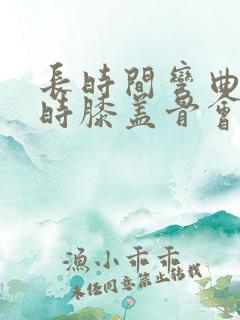 長時間彎曲
時膝蓋骨會
漁小乖乖
未經同意禁止轉載